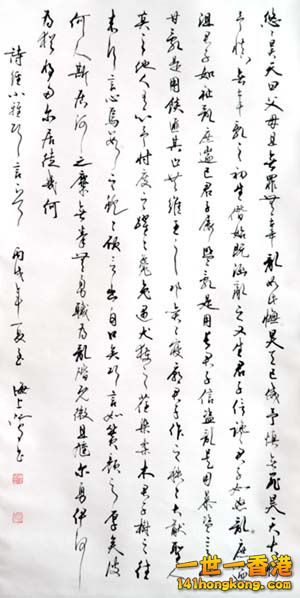 悠〻昊天曰父母且無罪無辜亂如此憮昊天已威予慎無罪昊天大憮
予慎無辜亂之初生僭始既涵亂之又生君子信讒君子如怒亂庶遄
沮君子如祉亂庶遄已君子屢盟亂是用長君子信盜亂是用暴盜言孔
甘亂是用餤匪其止共維王之邛奕〻寢廟君子作之秩〻大猷聖人
莫之他人有心予忖度之躍〻毚兔遇犬獲之荏染柔木君子樹之往
來行言心焉數之蛇〻碩言出自口矣巧言如簧顏之厚矣彼
何人斯居河之麋無拳無勇職為亂階既微且尰爾勇伊何
為猶將多爾居徒幾何
詩經小雅巧言 丙戌年夏 海上
一世一香港
141hongkong.com